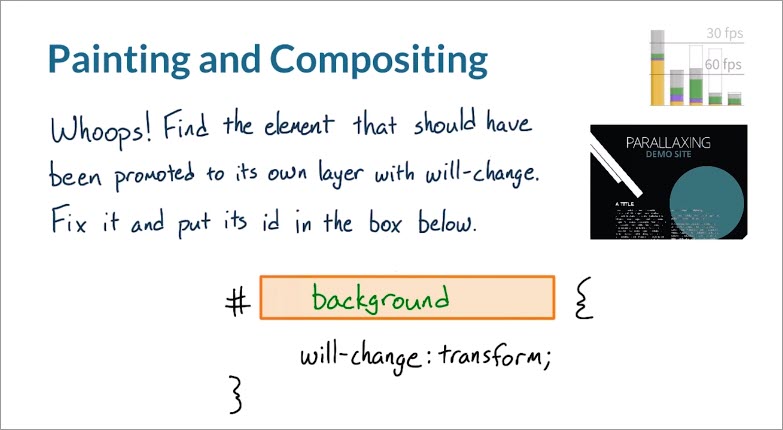 Painting and Compositing
30 fps
60 fps
Whoops! Find the element that should have
been promoted to its own layer with will-change.
Fix it and put its id in the box below.
PARALLAXING
DEMO SITE
A TITLE
# background {
will-change: transform;
}